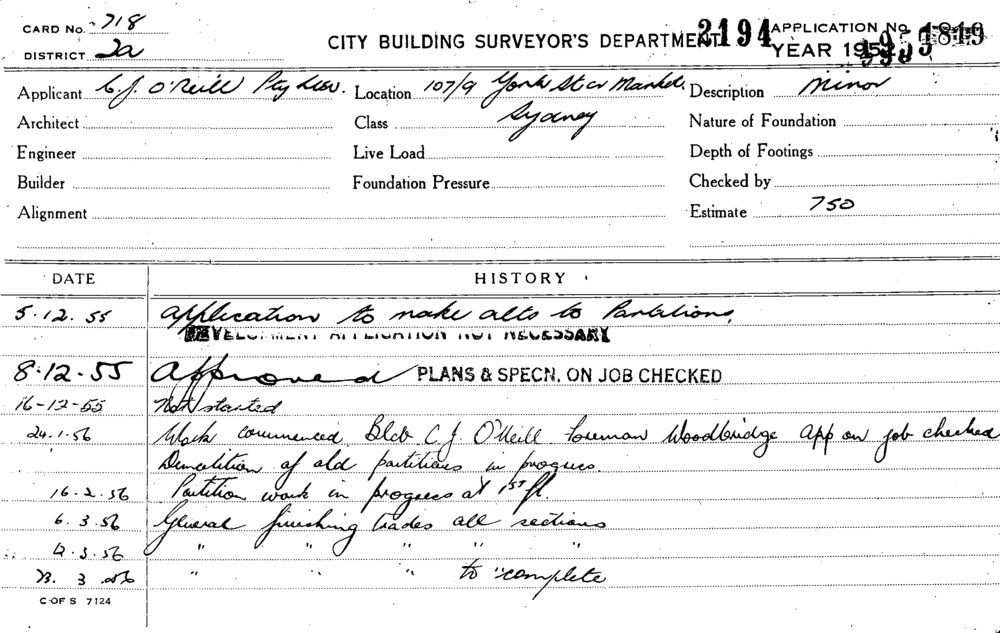 CARD No. 718
DISTRICT 2a
CITY BUILDING SURVEYOR'S DEPARTMENT
2194
APPLICATION No.
YEAR 195
Applicant C. J. O'Neill Pty Ltd. Location 107/9 York St cr Market. Description Minor
Architect Class Sydney Nature of Foundation
Engineer Live Load Depth of Footings
Builder Foundation Pressure Checked by
Alignment Estimate 750
DATE HISTORY
5.12.55 Application to make alts to Partitions.
DEVELOPMENT APPLICATION NOT NECESSARY
8.12.55 Approved PLANS & SPECN. ON JOB CHECKED
16-12-55 Not started
24.1.56 Work commenced. Bldr C. J. O'Neill Foreman Woodbridge App on job checked
Demolition of old partitions in progress.
16.2.56 Partition work in progress at 1st fl.
6.3.56 General finishing trades all sections
3.56 " " " " "
23.3.56 " " " to complete
C OF S 7124